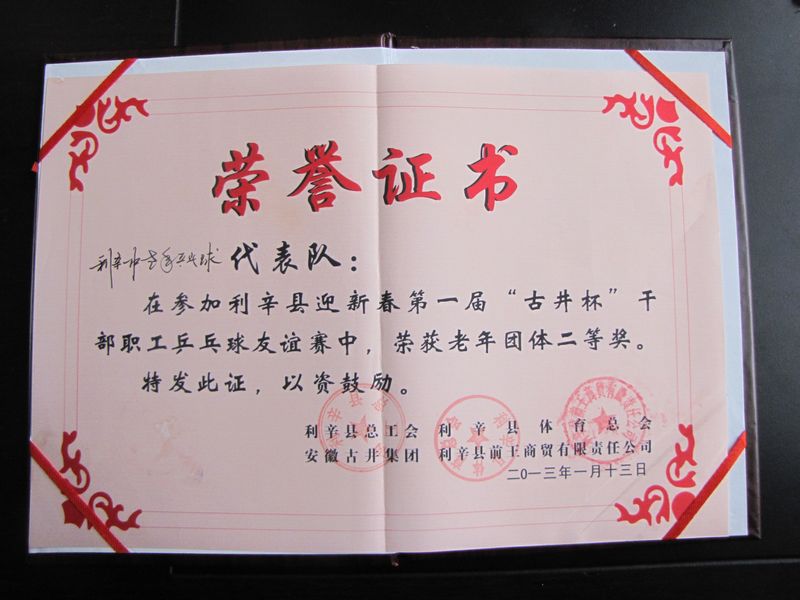 荣誉证书
利辛中老年乒乓球代表队：
在参加利辛县迎新春第一届“古井杯”干
部职工乒乓球友谊赛中，荣获老年团体二等奖。
特发此证，以资鼓励。
利辛县总工会 利辛县体育总会
安徽古井集团 利辛县前王商贸有限责任公司
二〇一三年一月十三日